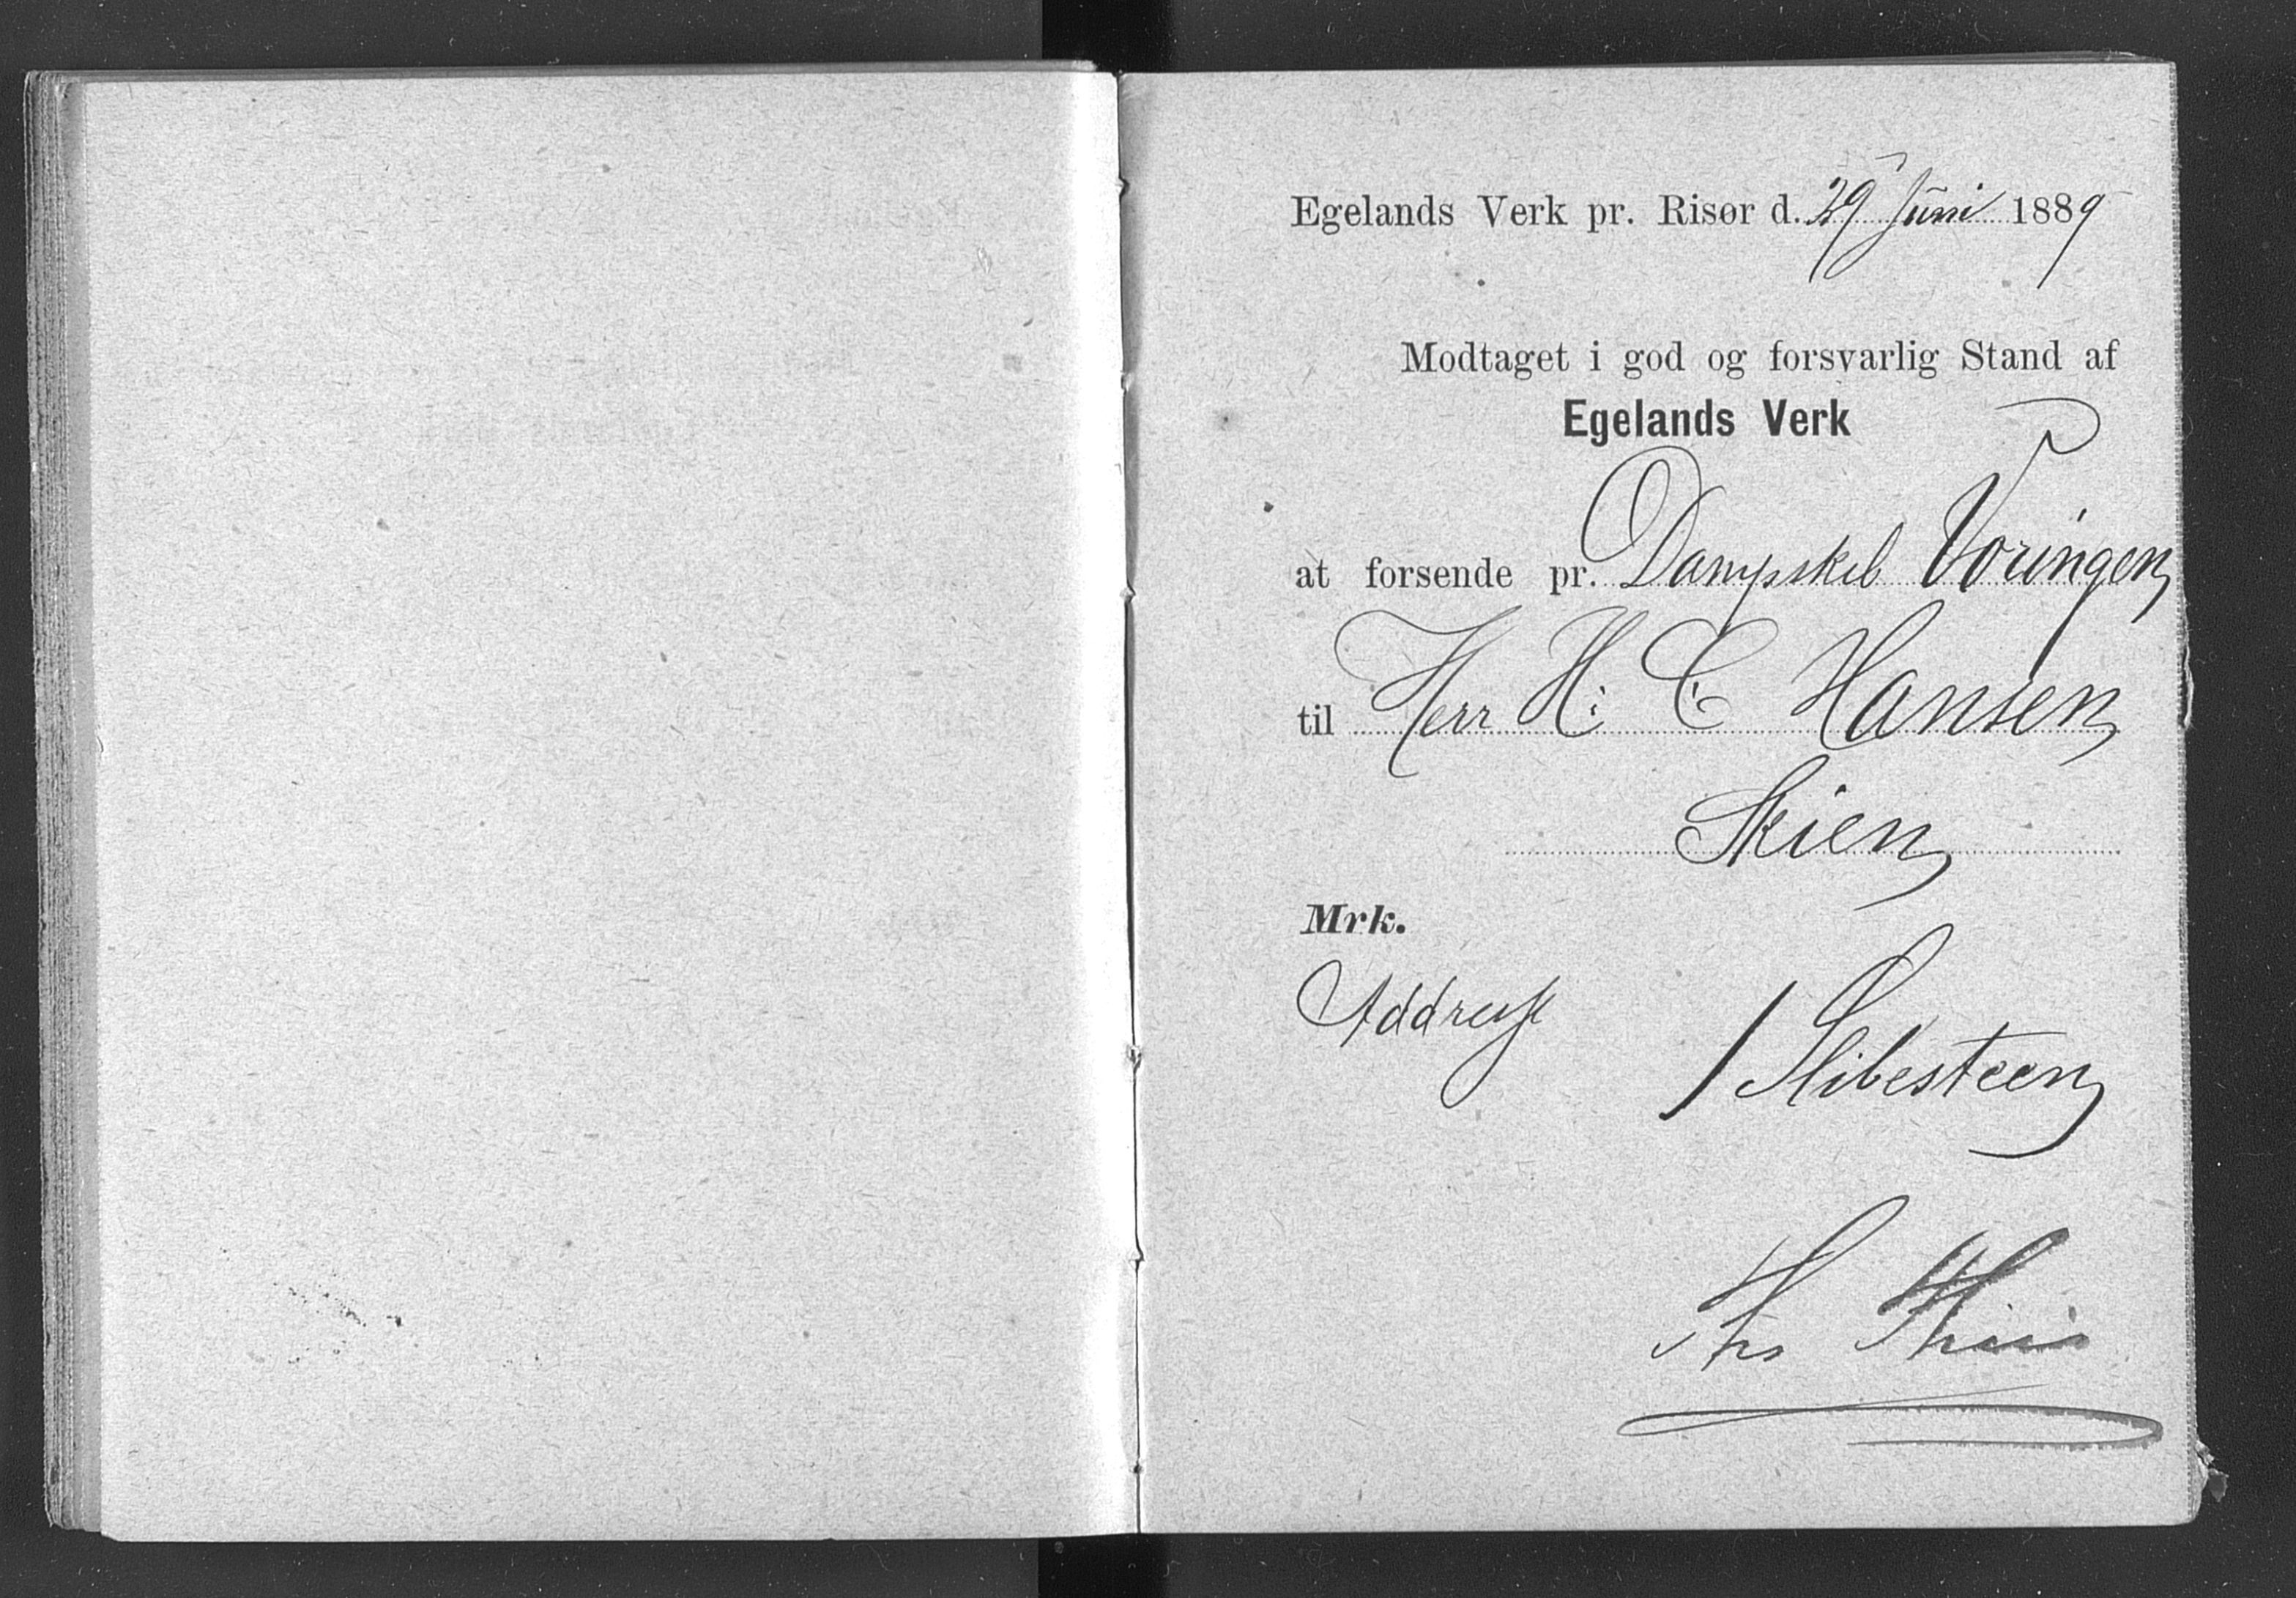 Egelands Verk pr. Risør d. 29 Juni 1889
Modtaget i god og forsvarlig Stand af
Egelands Verk
at forsende pr. Dampskib Voringen
til Herr H. C. Hansen
Skien
Mrk.
Addresse
1 Slibesteen